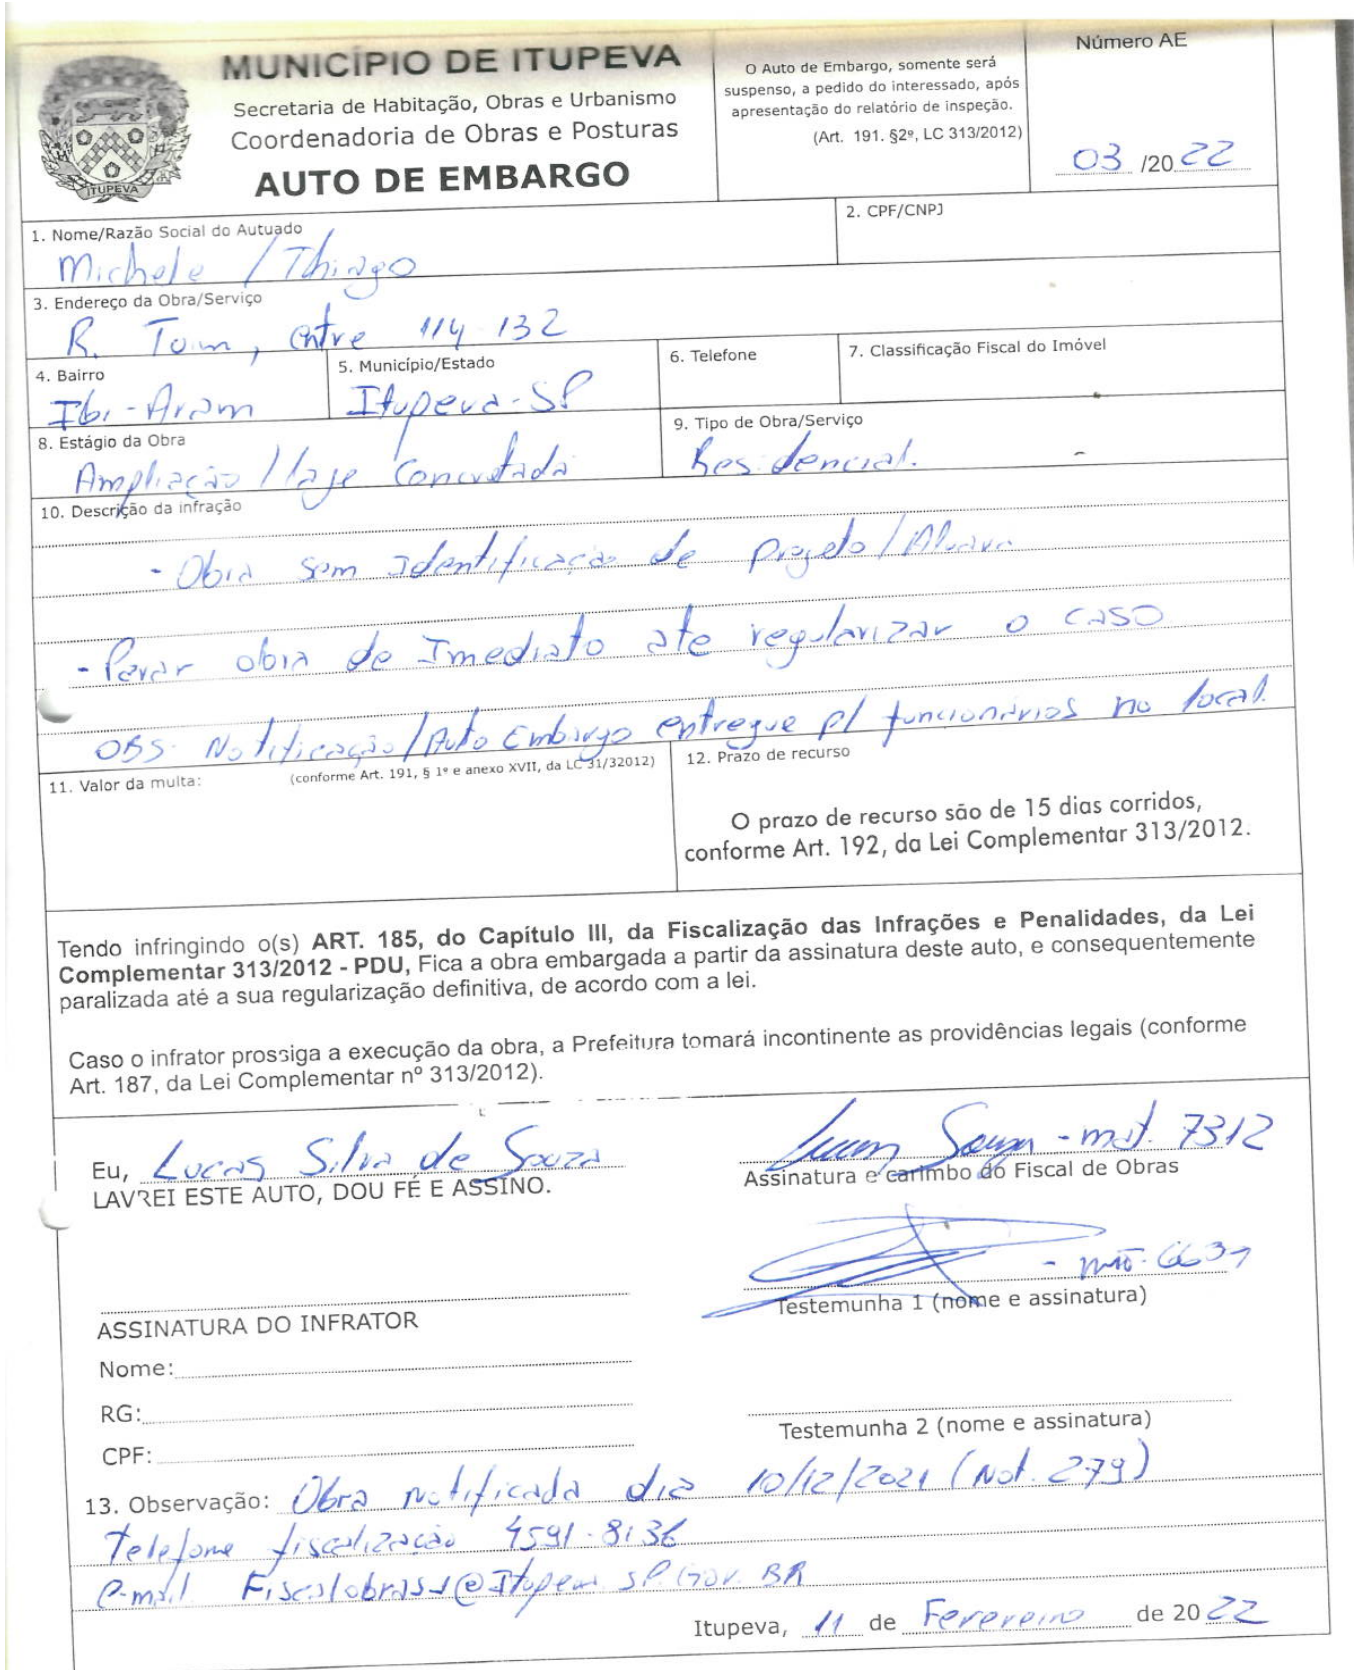 MUNICÍPIO DE ITUPEVA
Secretaria de Habitação, Obras e Urbanismo
Coordenadoria de Obras e Posturas
AUTO DE EMBARGO
ITUPEVA
O Auto de Embargo, somente será
suspenso, a pedido do interessado, após
apresentação do relatório de inspeção.
(Art. 191. §2º, LC 313/2012)
Número AE
03 /2022
1. Nome/Razão Social do Autuado
Michele / Thiago
2. CPF/CNPJ
3. Endereço da Obra/Serviço
R. , entre 114-132
4. Bairro
Ibi-Aram
5. Município/Estado
Itupeva-SP
6. Telefone
7. Classificação Fiscal do Imóvel
8. Estágio da Obra
Ampliação / laje Concretada
9. Tipo de Obra/Serviço
Residencial.
10. Descrição da infração
- Obra sem Identificação de projeto / Alvara
- Parar obra de Imediato ate regularizar o caso
OBS: Notificação/Auto Embargo entregue p/ funcionários no local.
11. Valor da multa:
(conforme Art. 191, § 1º e anexo XVII, da LC 31/32012)
12. Prazo de recurso
O prazo de recurso são de 15 dias corridos,
conforme Art. 192, da Lei Complementar 313/2012.
Tendo infringindo o(s) ART. 185, do Capítulo III, da Fiscalização das Infrações e Penalidades, da Lei
Complementar 313/2012 - PDU, Fica a obra embargada a partir da assinatura deste auto, e consequentemente
paralizada até a sua regularização definitiva, de acordo com a lei.
Caso o infrator prossiga a execução da obra, a Prefeitura tomará incontinente as providências legais (conforme
Art. 187, da Lei Complementar nº 313/2012).
Eu, Lucas Silva de Souza
LAVREI ESTE AUTO, DOU FÉ E ASSINO.
Souza - mat. 7312
Assinatura e carimbo do Fiscal de Obras
Testemunha 1 (nome e assinatura)
ASSINATURA DO INFRATOR
Nome:
RG:
CPF:
Testemunha 2 (nome e assinatura)
13. Observação: Obra Notificada dia 10/12/2021 (Not. 279)
Telefone fiscalização 4591-8136
e-mail
Itupeva, 11 de Fevereiro de 2022